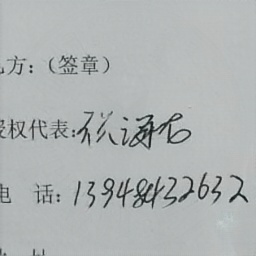 乙方：（签章）
授权代表：张海右
电 话：13948432632
地 址